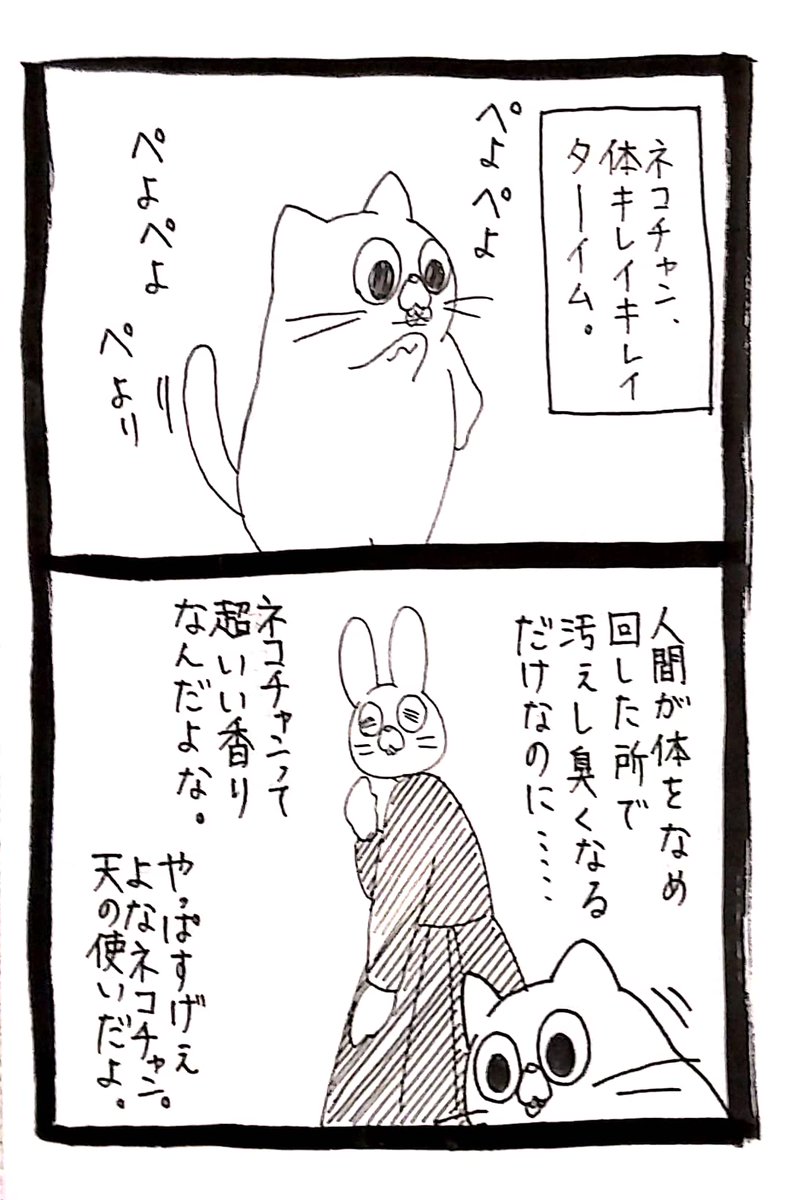 ネコチャン、
体キレイキレイ
ターイム。
ぺよぺよ
ぺよぺよ
ぺより
人間が体をなめ
回した所で
汚ぇし臭くなる
だけなのに……
ネコチャンって
超いい香り
なんだよな。
やっぱすげぇ
よなネコチャン。
天の使いだよ。